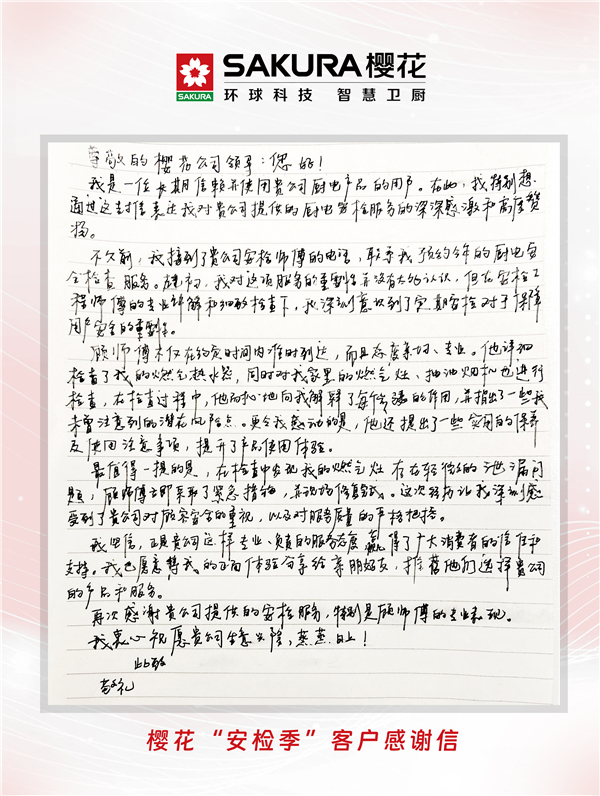 SAKURA
SAKURA樱花
环球科技 智慧卫厨
尊敬的樱花公司领导：您好！
我是一位长期信赖并使用贵公司厨电产品的用户。在此，我特别想
通过这封信表达我对贵公司提供的厨电安检服务的深深感激和高度赞
扬。
不久前，我接到了贵公司安检师傅的电话，联系我预约今年的厨电安
全检查服务。起初，我对这项服务的重要性并没有太多认识，但在安检工
程师傅的专业讲解和细致检查下，我深刻意识到了定期安检对于保障
用户安全的重要性。
顾师傅不仅在约定时间内准时到达，而且态度亲切、专业。他详细
检查了我的燃气热水器，同时对我家里的燃气灶、抽油烟机也进行
检查，在检查过程中，他耐心地向我解释了每个步骤的作用，并指出了一些我
未曾注意到的潜在风险点。更令我感动的是，他还提出了一些实用的保养
及使用注意事项，提升了产品使用体验。
最值得一提的是，在检查中发现我的燃气灶存在轻微的泄漏问
题，顾师傅立即采取了紧急措施，并现场修复。这次经历让我深刻感
受到了贵公司对顾客安全的重视，以及对服务质量的严格把控。
我坚信，正是贵公司这样专业、负责的服务态度赢得了广大消费者的信任和
支持。我也愿意将我的正面体验分享给亲朋好友，推荐他们选择贵公司
的产品和服务。
再次感谢贵公司提供的安检服务，特别是顾师傅的专业表现。
我衷心祝愿贵公司生意兴隆，蒸蒸日上！
此致
敬礼
樱花“安检季”客户感谢信